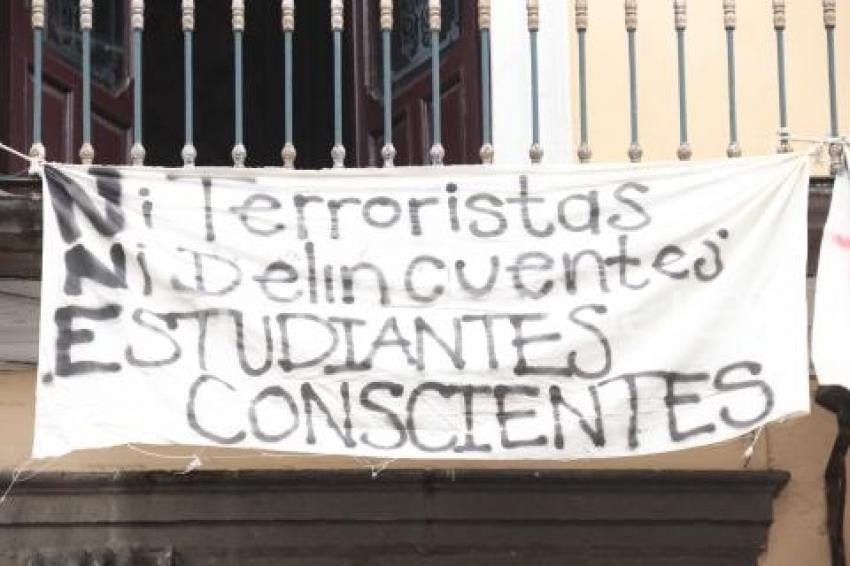 Ni Terroristas
Ni Delincuentes
ESTUDIANTES
CONSCIENTES